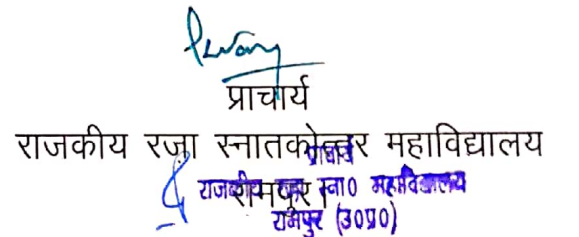 प्राचार्य
राजकीय रज़ा स्नातकोत्तर महाविद्यालय
रामपुर।
प्राचार्य
राजकीय रज़ा स्ना0 महाविद्यालय
रामपुर (उ0प्र0)